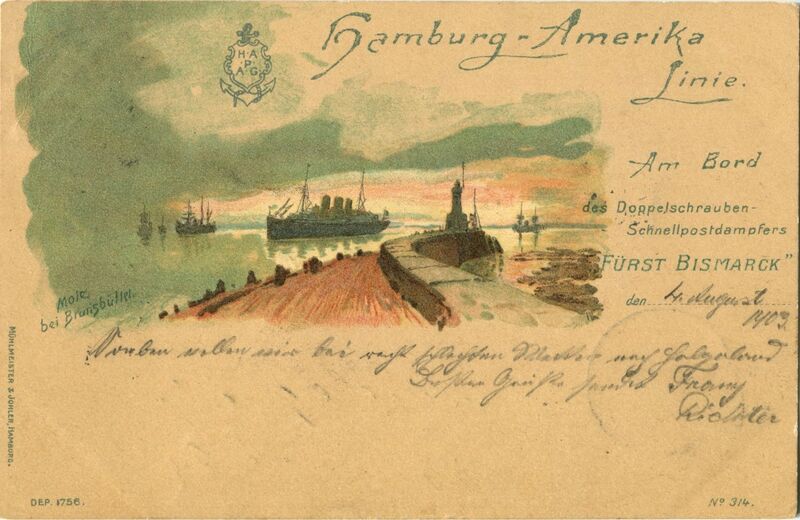 Hamburg-Amerika
Linie.
H.A.
P.
A.G.
Am Bord
des Doppelschrauben-
Schnellpostdampfers
"FÜRST BISMARCK"
den 4. August
1903
Mole
bei Brunsbüttel.
wollen wir bei recht schlechten Wetter nach Helgoland
Besten Grüße sendet Franz
Richter
MÜHLMEISTER & JOHLER, HAMBURG.
DEP. 1756.
No 314.